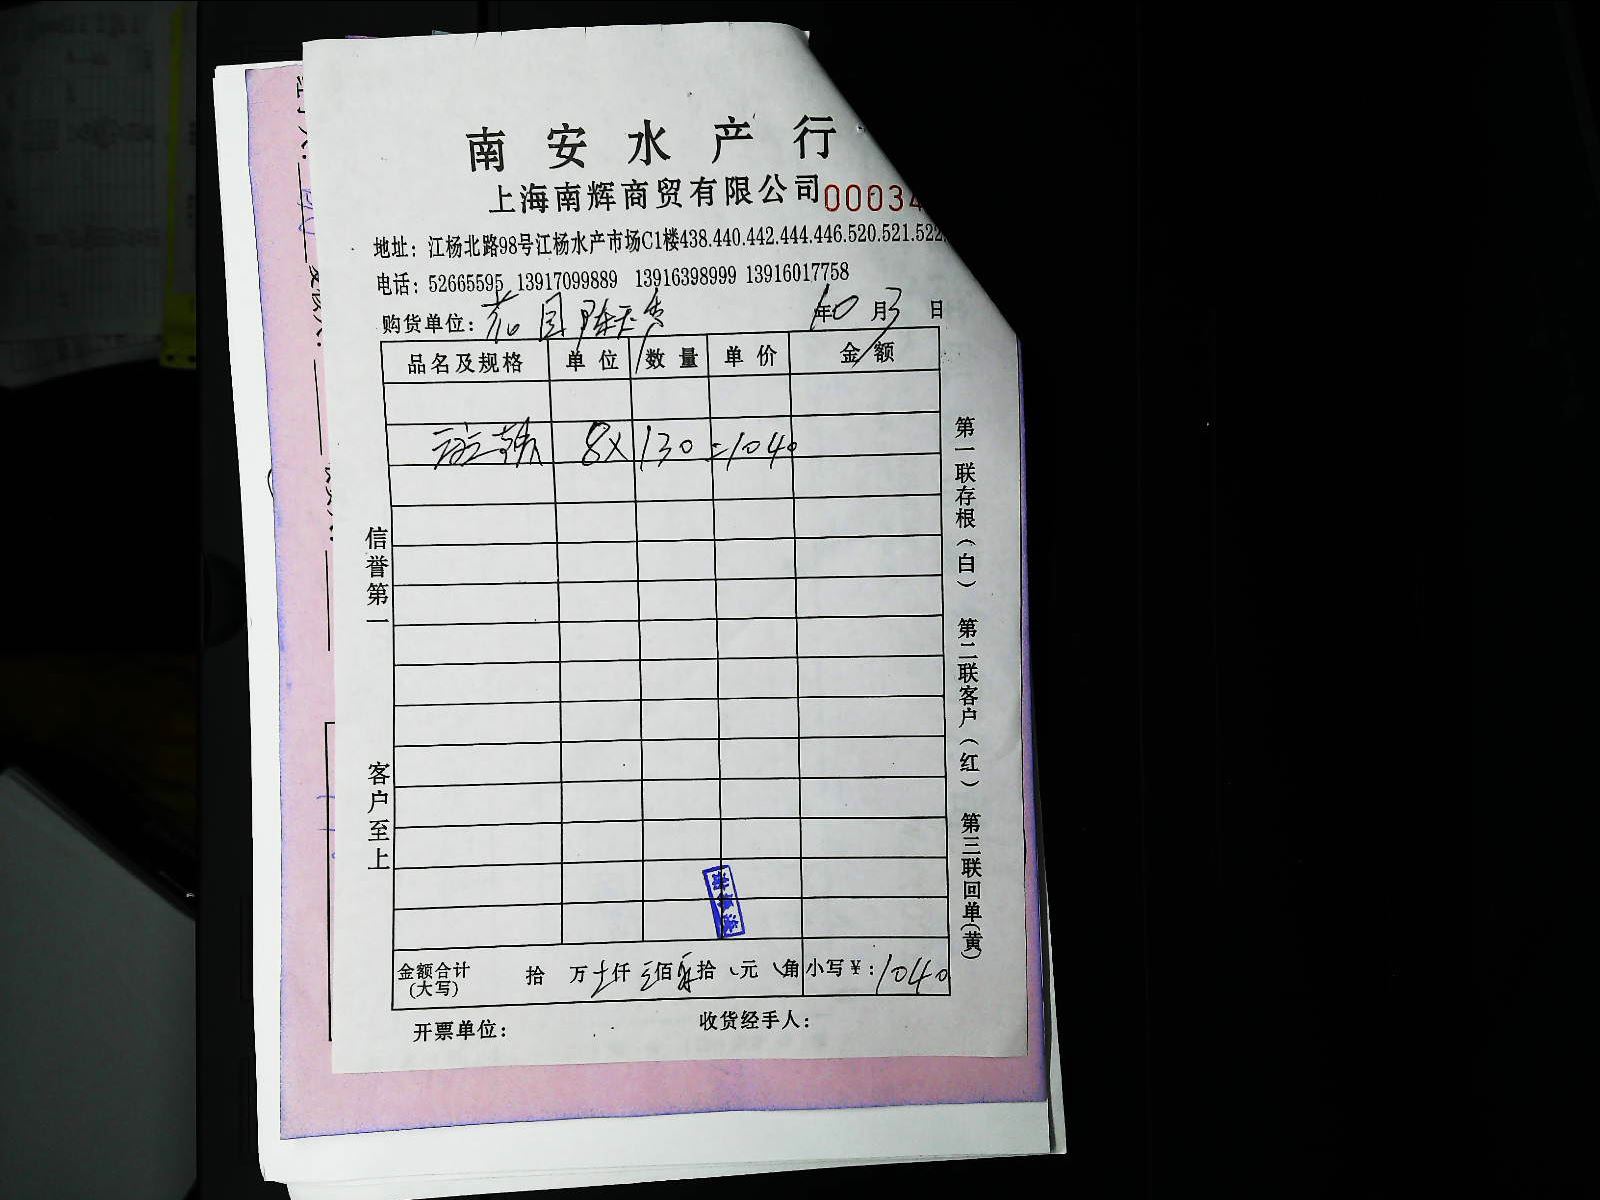 南安水产行
上海南辉商贸有限公司 00034
地址：江杨北路98号江杨水产市场C1楼438.440.442.444.446.520.521.522.
电话：52665595 13917099889 13916398999 13916017758
购货单位：花园 年10月3日
品名及规格 单位 数量 单价 金额
8X 130 =1040
信誉第一
客户至上
第一联存根（白） 第二联客户（红） 第三联回单(黄)
金额合计(大写) 拾 万 仟 佰 拾 元 角 小写¥：1040
开票单位： 收货经手人：